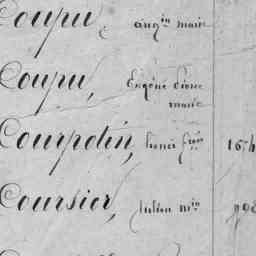 Coupu, aug.in marie
Coupu, Eugène Pierre
marie
Courpotin, françois 164
Coursier, Julien m.in 998